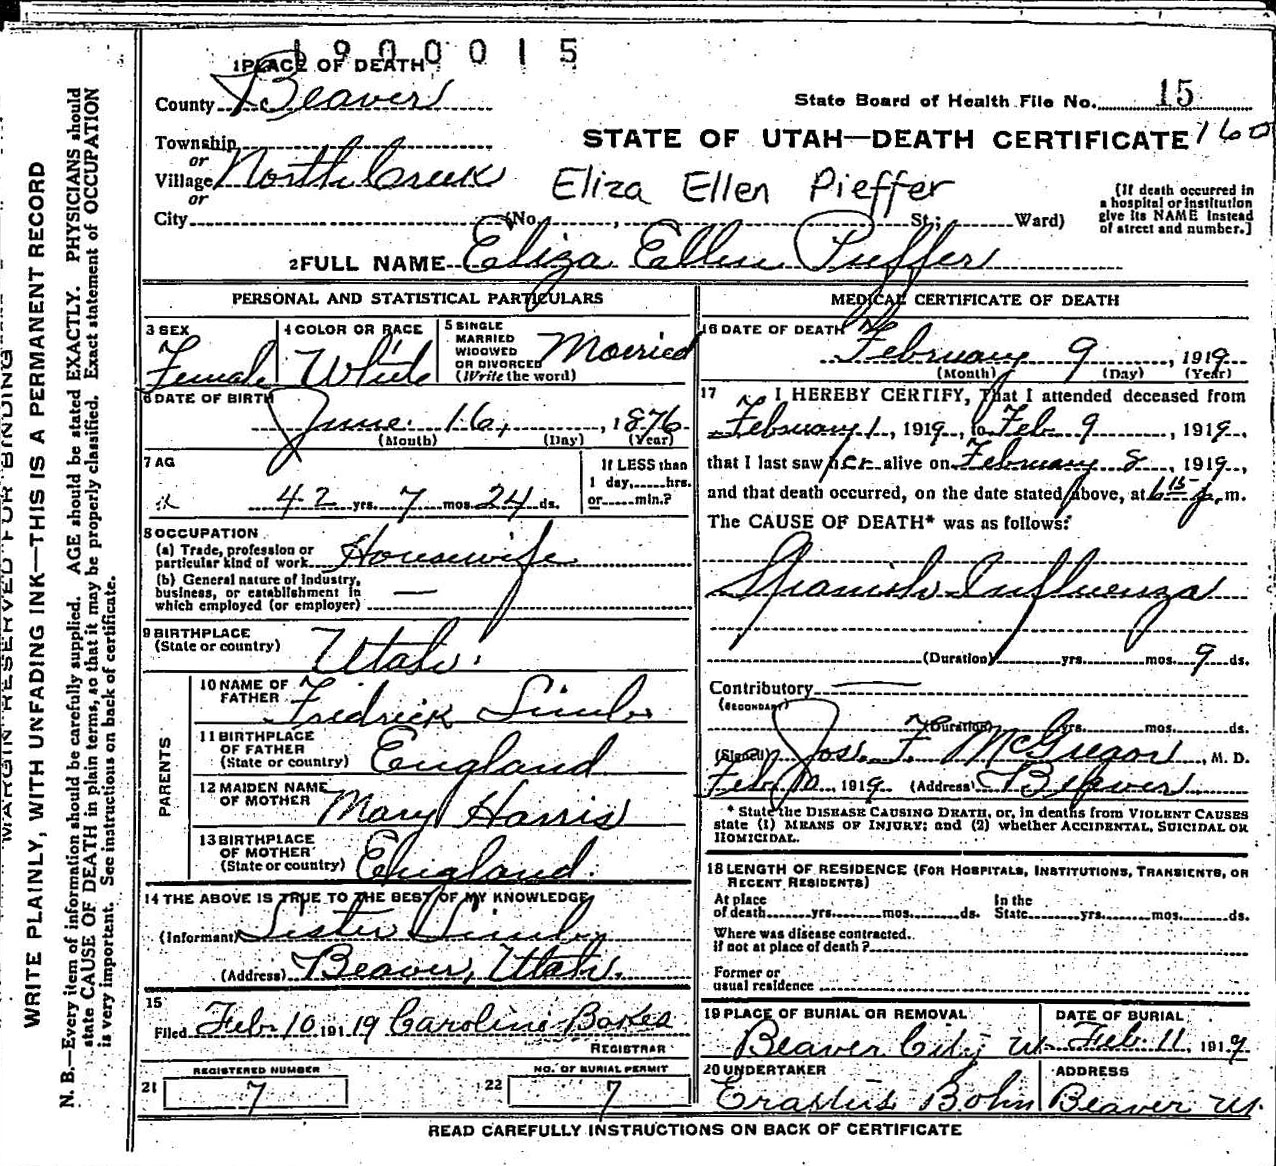 1900015
1 PLACE OF DEATH
County Beaver
State Board of Health File No. 15
STATE OF UTAH—DEATH CERTIFICATE 160
Township
or
Village North Creek
or
Eliza Ellen Pieffer
City (No. , St.; Ward)
(If death occurred in
a hospital or institution
give its NAME instead
of street and number.]
2 FULL NAME Eliza Ellen Puffer
PERSONAL AND STATISTICAL PARTICULARS
3 SEX
Female
4 COLOR OR RACE
White
5 SINGLE
MARRIED
WIDOWED
OR DIVORCED
(Write the word)
Married
6 DATE OF BIRTH
June 16, , 1876
(Month) (Day) (Year)
7 AG
42 yrs. 7 mos. 24 ds.
If LESS than
1 day, hrs.
or min.?
8 OCCUPATION
(a) Trade, profession or
particular kind of work Housewife
(b) General nature of industry,
business, or establishment in
which employed (or employer) —
9 BIRTHPLACE
(State or country) Utah.
PARENTS
10 NAME OF
FATHER Fredrick
11 BIRTHPLACE
OF FATHER
(State or country) England
12 MAIDEN NAME
OF MOTHER Mary Harris
13 BIRTHPLACE
OF MOTHER
(State or country) England.
14 THE ABOVE IS TRUE TO THE BEST OF MY KNOWLEDGE
(Informant) Sister
(Address) Beaver, Utah.
15
Filed Feb. 10 191 19 Caroline Bakes
REGISTRAR
21 REGISTERED NUMBER
7
22 NO. OF BURIAL PERMIT
7
MEDICAL CERTIFICATE OF DEATH
16 DATE OF DEATH
February 9 , 1919
(Month) (Day) (Year)
17 I HEREBY CERTIFY, That I attended deceased from
February 1, 1919, to Feb 9, 1919,
that I last saw her alive on February 8, 1919,
and that death occurred, on the date stated above, at 6 15 p. m.
The CAUSE OF DEATH* was as follows:
Spanish Influenza
(Duration) yrs. mos. 9 ds.
Contributory —
(SECONDARY)
(Duration) yrs. mos. ds.
(Signed) Jos. F. McGregor, M. D.
Feb 10, 1919 (Address) Beaver
* State the DISEASE CAUSING DEATH, or, in deaths from VIOLENT CAUSES
state (1) MEANS OF INJURY; and (2) whether ACCIDENTAL, SUICIDAL OR
HOMICIDAL.
18 LENGTH OF RESIDENCE (FOR HOSPITALS, INSTITUTIONS, TRANSIENTS, OR
RECENT RESIDENTS)
At place In the
of death yrs. mos. ds. State yrs. mos. ds.
Where was disease contracted
if not at place of death?
Former or
usual residence
19 PLACE OF BURIAL OR REMOVAL
Beaver City U.
DATE OF BURIAL
Feb. 11, 1919
20 UNDERTAKER
Erastus Bohn
ADDRESS
Beaver Ut.
READ CAREFULLY INSTRUCTIONS ON BACK OF CERTIFICATE
MARGIN RESERVED FOR BINDING
WRITE PLAINLY, WITH UNFADING INK—THIS IS A PERMANENT RECORD
N. B.—Every item of information should be carefully supplied. AGE should be stated EXACTLY. PHYSICIANS should
state CAUSE OF DEATH in plain terms, so that it may be properly classified. Exact statement of OCCUPATION
is very important. See instructions on back of certificate.